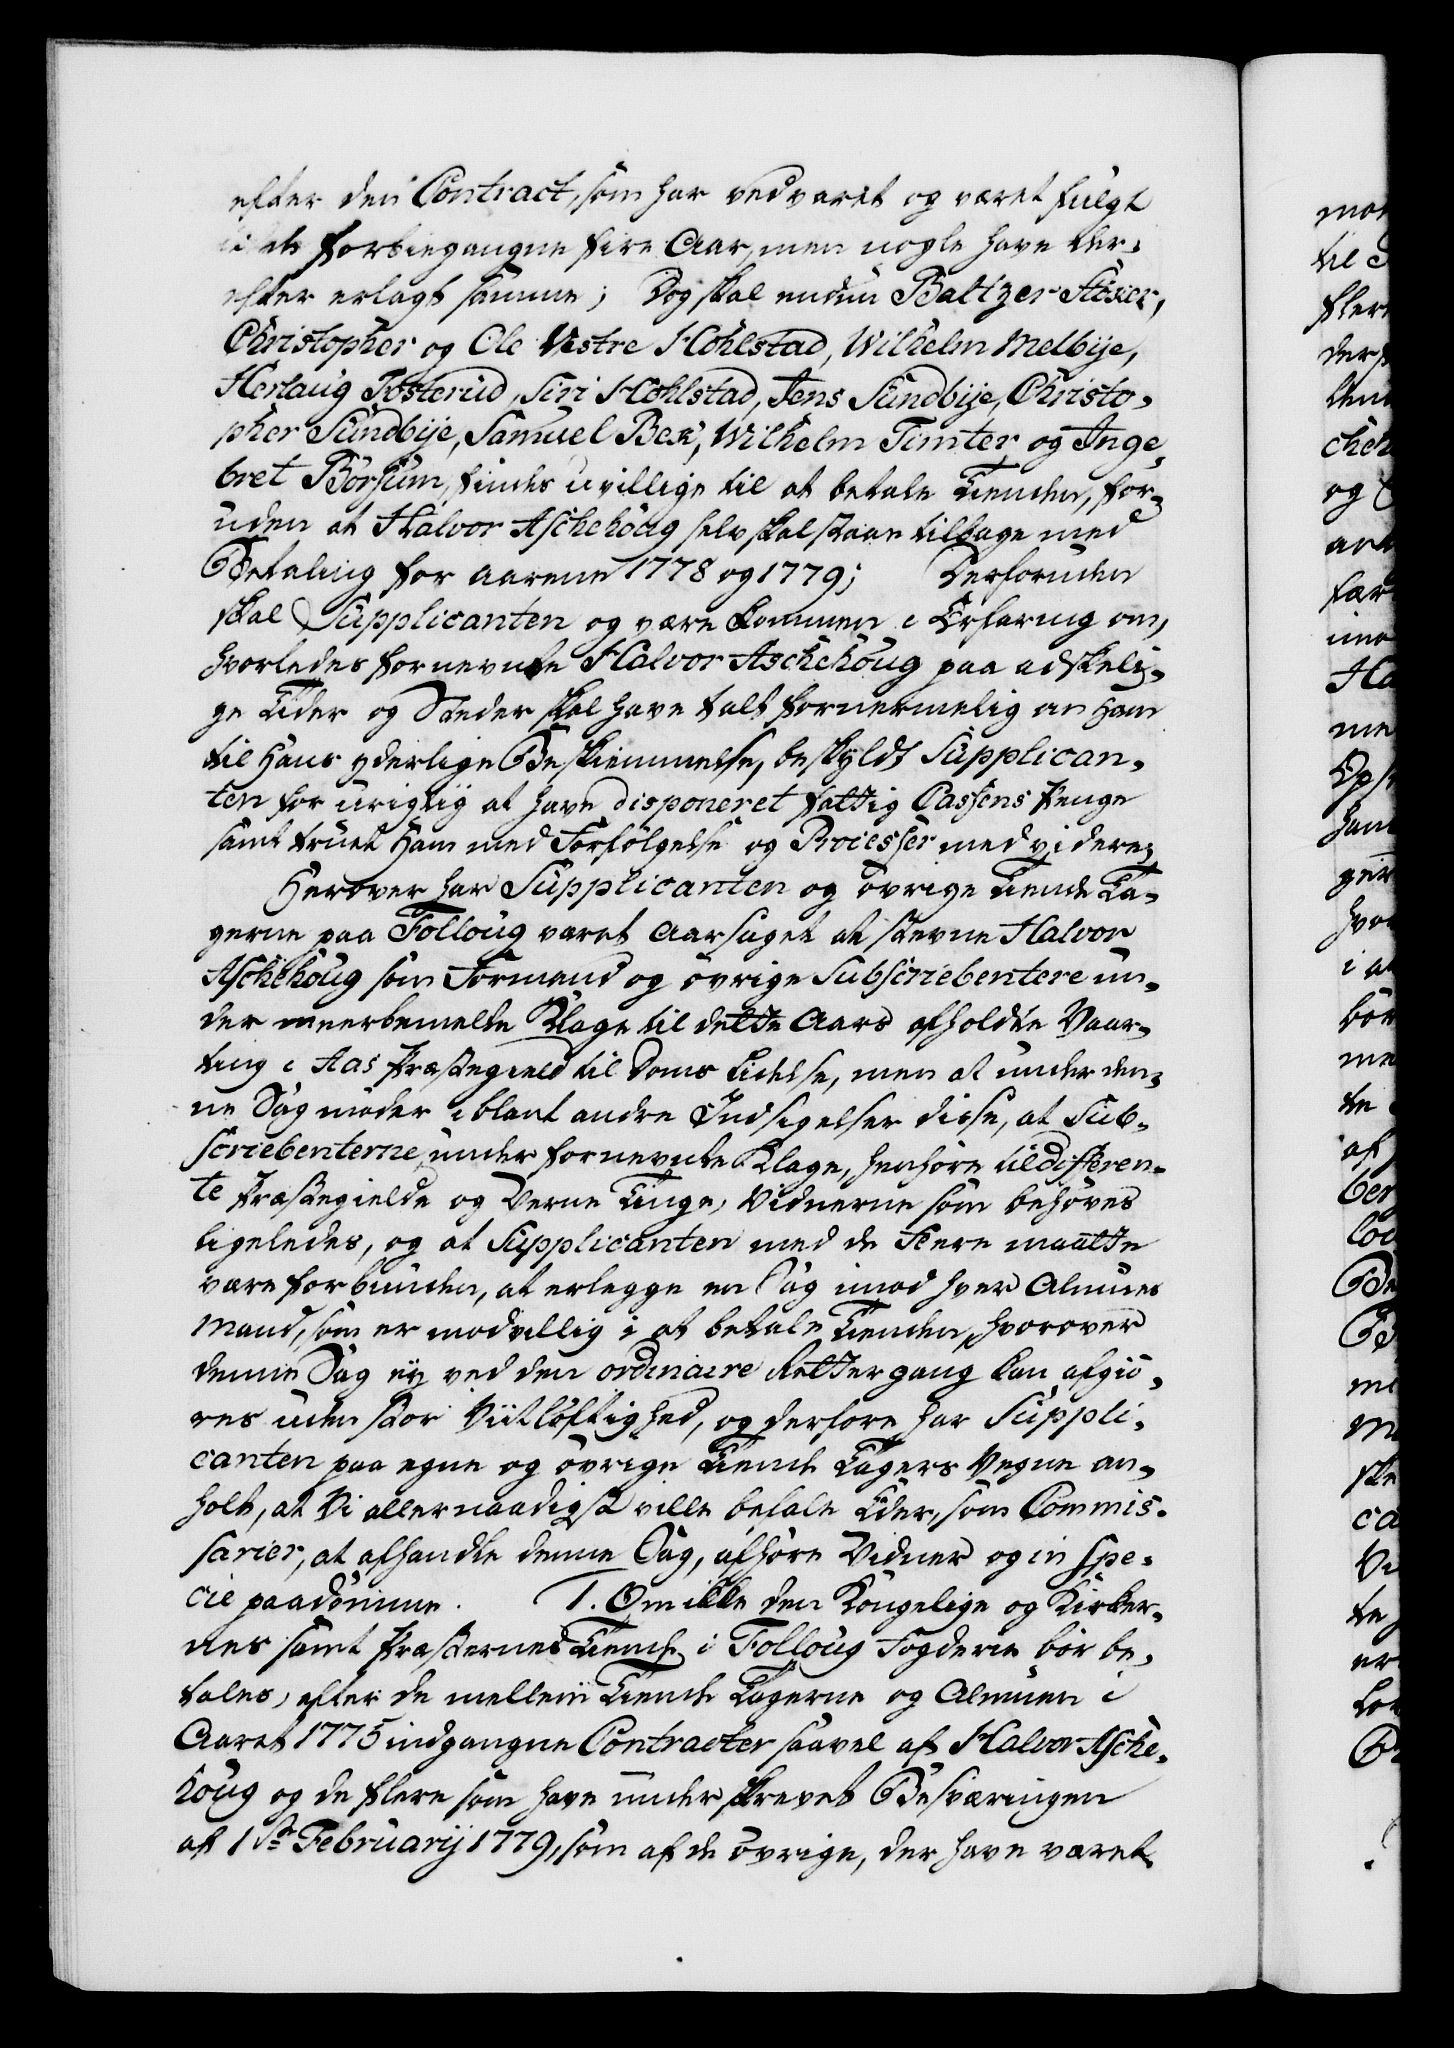 efter den Contract, som har vedvaret og været fulgt
forbiegangne fire Aar, men nogle have der-
efter erlagt samme; Dog skal endnu Baltzer
Christopher og Ole Vestre Hohlstad, Wilhelm Melbije,
Herlaug Fosterud, Siri Hohlstad, Jens Sundbije, Christo-
pher Sundbije, Samuel Bek, Wilhelm Timter og Inge-
bret Borsum, findes uvillige til at betale Tienden, for-
uden at Halvor Aschehoug selv skal staae tilbage med
Betaling for Aarene 1778 og 1779; Desforuden
skal Supplicanten og være kommen i Erfaring om,
hvorledes fornevnte Halvor Aschehoug paa adskeli-
ge Tider og Steder skal have talt fornermelig om Ham
til Hans yderlige Beskiemmelse, beskyldt Supplican-
ten for urigtig at have disponeret fattig Cassens Penge
samt truet Ham med Forfølgelse og Processer med videre;
Herover har Supplicanten og øvrige Tiende Ta-
gerne paa Folloug været aarsaget at stevne Halvor
Aschehoug som Formand og øvrige Subscriebentere un-
der meerbemelte Klage til dette Aars afholdte Vaar-
ting i Aas Præstegield til Doms Lidelse, men at under den-
ne Sag møder iblant andre Indsigelser disse, at Sub-
scriebenterne under fornevnte Klage, henhøre til differen-
te Præstegielde og Verne Tinge, Vidnerne som behøves
ligeledes, og at Supplicanten med de Fleere maatte
være forbunden, at erlegge en Sag imod hver Almues
Mand, som er modvillig i at betale Tienden, hvorover
denne Sag ey ved den ordinaire Rettergang kan afgiø-
res uden stor Viitløftighed, og derfore har Suppli-
canten paa egne og øvrige Tiende Tagers Vegne an-
holt, at Vi allernaadigst ville befale Eder, som Commis-
sarier, at afhandle denne Sag, afhøre Vidner og in spe-
cie paadømme. 1. Om ikke den Kongelige og Kirker-
nes samt Præsternes Tiende i Folloug Fogderie bør be-
tales, efter de mellem Tiende Tagerne og Almuen i
Aaret 1775 indgangne Contracter saavel af Halvor Asche-
houg og de flere som have underskrevet Besværingen
af 1ste Februarij 1779, som af de øvrige, der have været